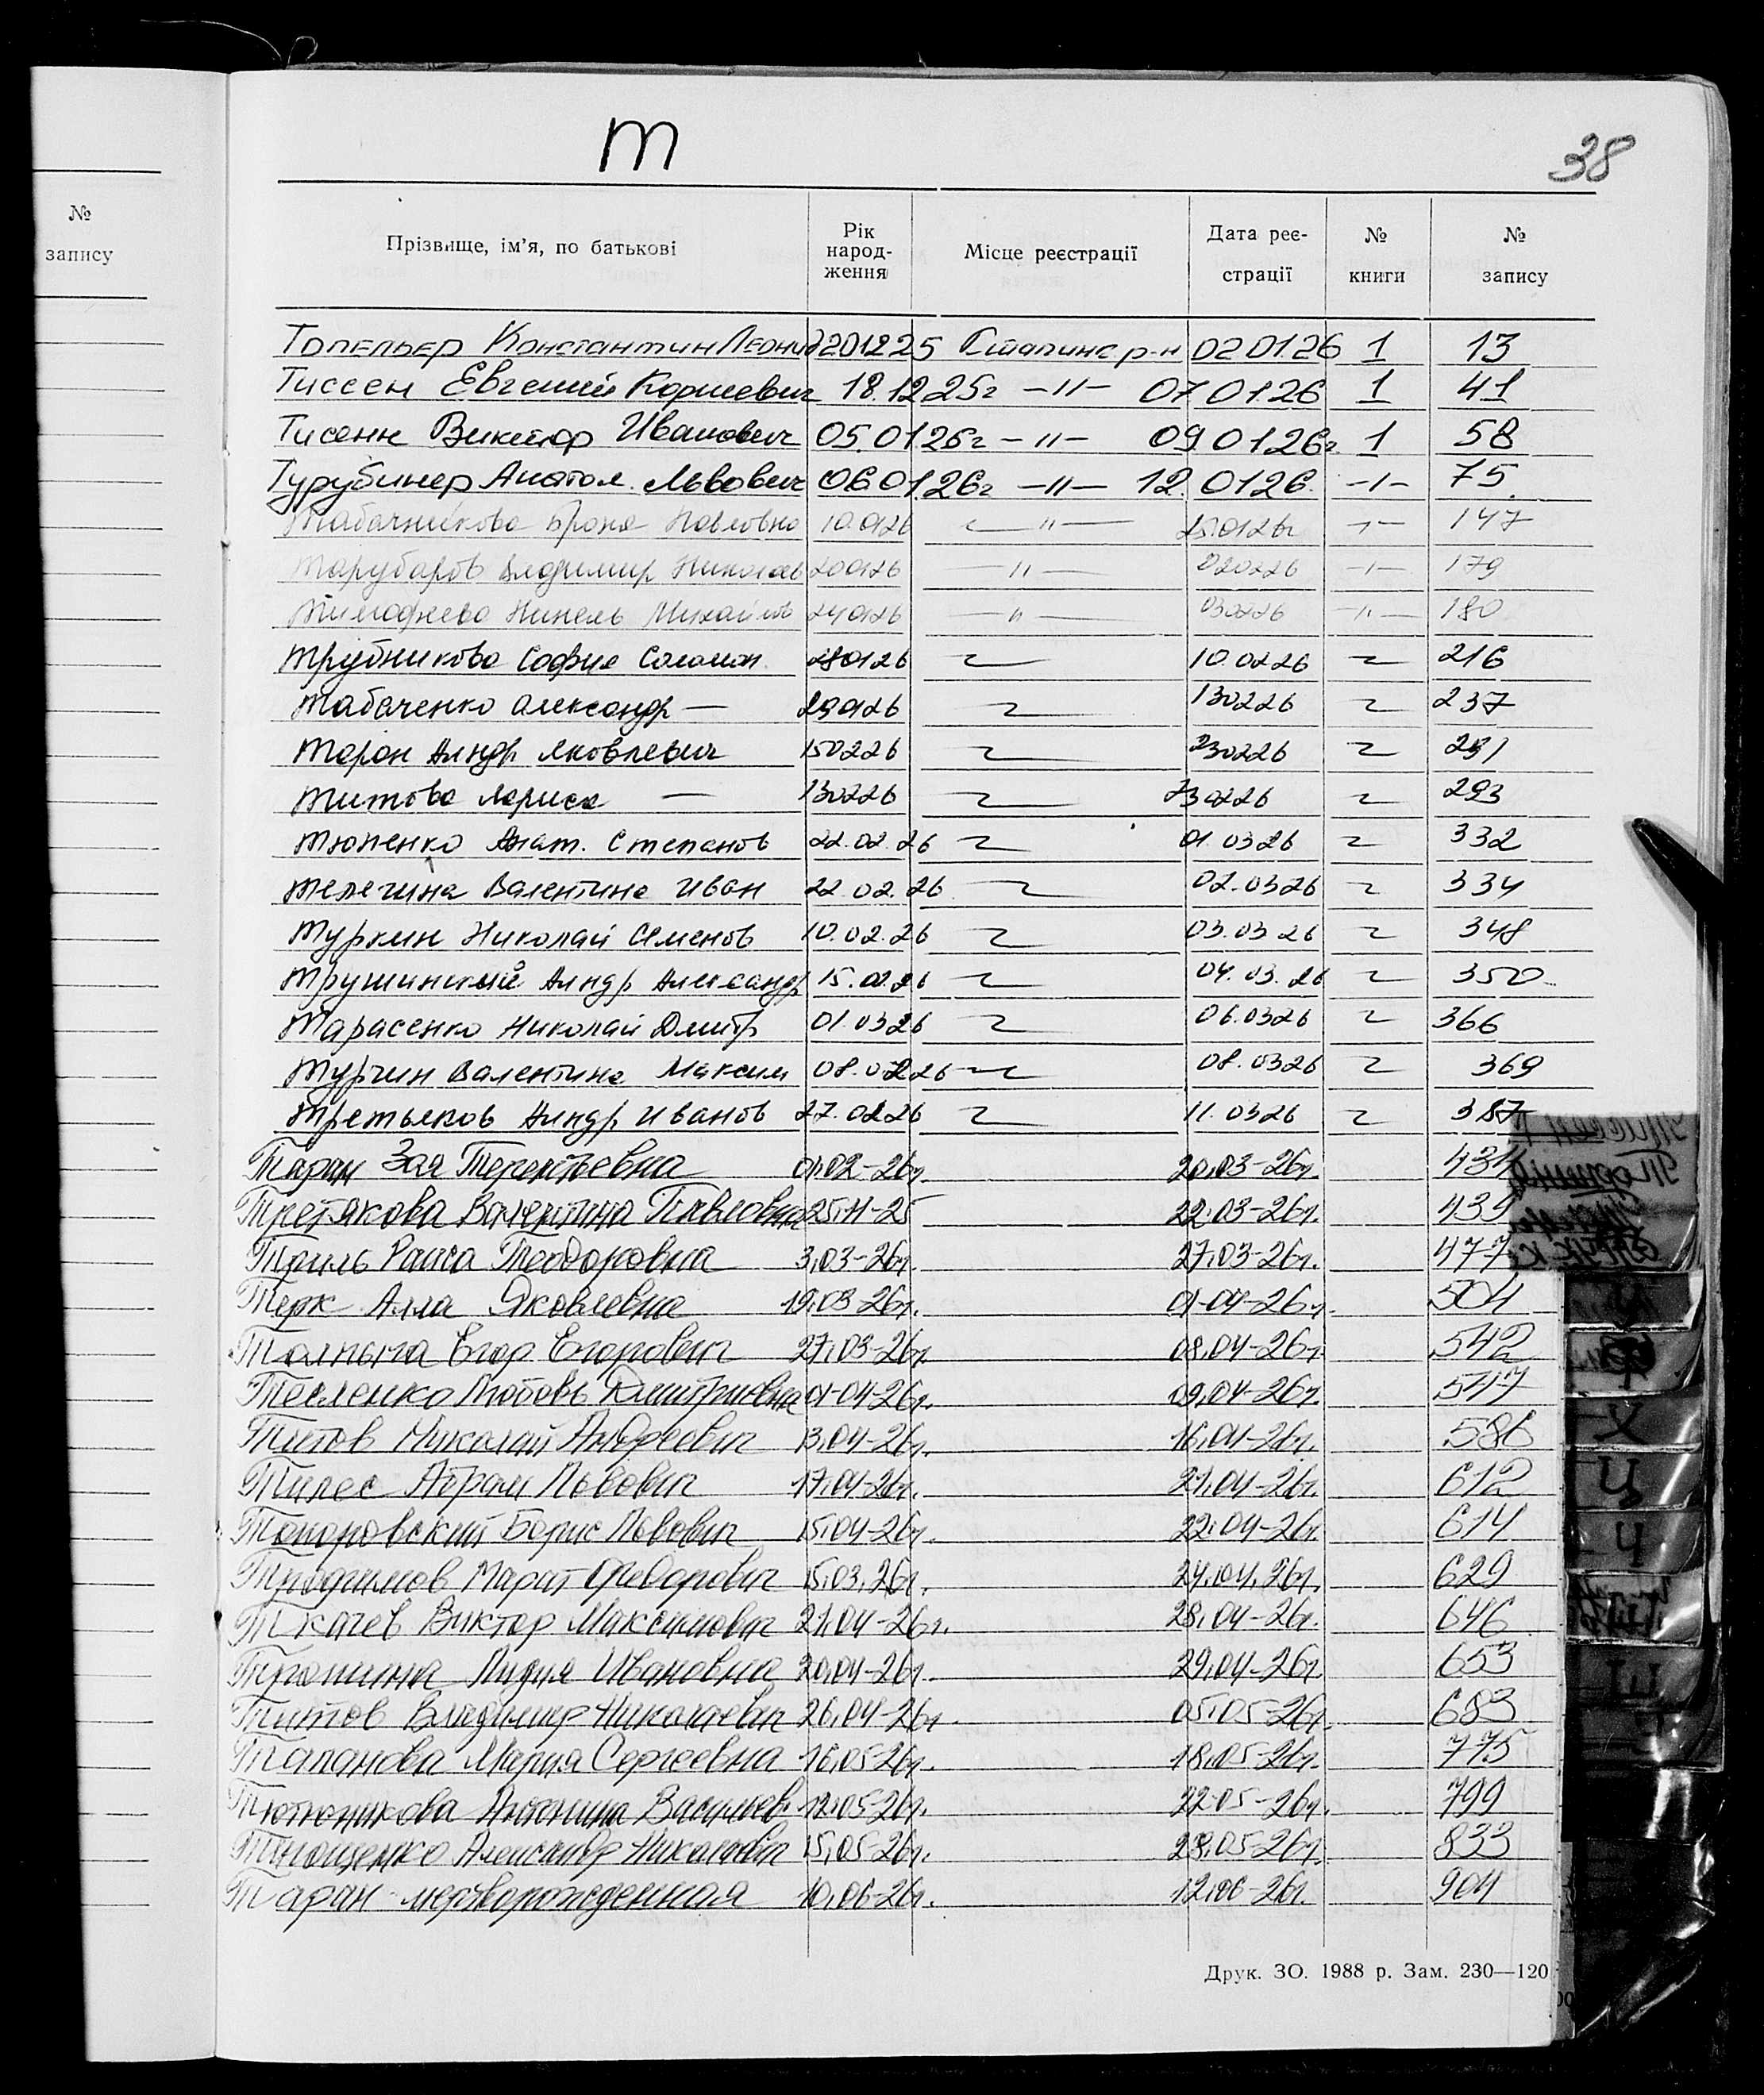 т
38
№ запису
Прізвище, ім'я, по батькові Рік народ-ження Місце реєстрації Дата реє-страції № книги № запису
Топельер Константин Леонид 201225 Сталинс р-н 020126 1 13
Тиссен Евгений Корнеевич 18.12.25г -"- 07.0126 1 41
Тисенн Виктор Иванович 05.0126г -"- 09.0126г. 1 58
Турубинер Анатол. Львович 06.0126г -"- 12.0126. -"- 75
Табачникова Броня Павловна 10.0126 -"- 25.0126г -"- 147
Тарубаров Владимир Николаев 200126 -"- 020226 -"- 179
Тимофеева Нинель Михайлов 240126 -"- 030226 -"- 180
Трубникова София Соломон. 280126 10.0226 216
Табаченко Александр — 290126 130226 237
Таран Алндр Яковлевич 150226 230226 291
Титова Лариса — 130226 230226 293
Тюпенко Анат. Степанов 22.02.26 01.0326 332
Телегина Валентина Иван 22.02.26 02.0326 334
Туркин Николай Семенов 10.02.26 03.03 26 348
Трушинский Алндр Александр 15.02.26 04.03.26 350
Тарасенко Николай Дмитр 01.0326 06.0326 366
Турчин Валентина Максим 08.0226 08.0326 369
Третьяков Алндр Иванов 27.0226 11.0326 387
Таран Зоя Терентьевна 01.02-26г. 20.03-26г. 434
Третякова Валентина Павловна 25.11-25 22.03-26г. 439
Раиса Теодоровна 3.03-26г. 27.03-26г. 477
Терк Алла Яковлевна 19.03-26г. 01-04-26г. 504
Толпыга Егор Егорович 27.03-26г. 08.04-26г. 542
Тесленко Любовь Дмитриевна 01-04-26г. 09.04-26г. 547
Титов Николай Андреевич 13.04-26г. 16.04-26г. 586
Тилес Абрам Львович 17.04-26г. 21.04-26г. 612
Топоровский Борис Львович 15.04-26г. 22.04-26г. 614
Трофимов Марат Федорович 15.03.26г. 24.04.26г. 629
Ткачев Виктор Максимович 21.04-26г. 28.04-26г. 646
Лидия Ивановна 20.04-26г. 29.04-26г. 653
Титов Владимир Николаевич 26.04-26г. 05.05-26г. 683
Тапанова Мария Сергеевна 16.05-26г. 18.05-26г. 775
Тютюникова Антонина Васильев. 12.05-26г. 22-05-26г. 799
Тимощенко Александр Николаевич 15.05-26г. 28.05-26г. 833
Таран мертворожденная 10.06-26г. 12.06-26г. 904
Друк. ЗО. 1988 р. Зам. 230—120